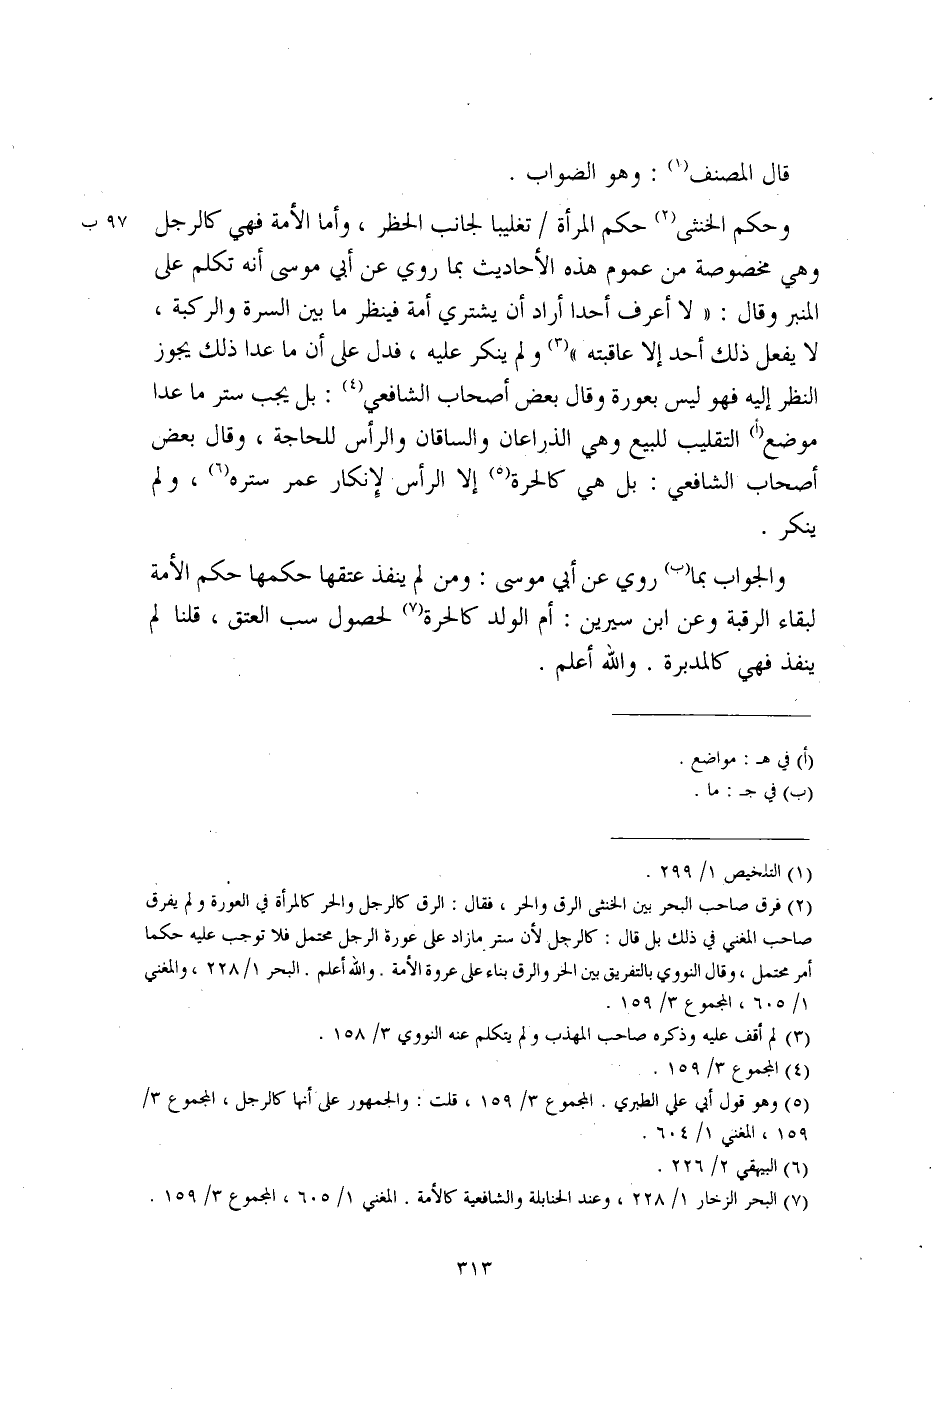 قال المصنف(١) : وهو الضواب .
وحكم الخنثى(٢) حكم المرأة / تغليبا لجانب الحظر ، وأما الأمة فهي كالرجل ٩٧ ب
وهي مخصوصة من عموم هذه الأحاديث بما روي عن أبي موسى أنه تكلم على
المنبر وقال : « لا أعرف أحدا أراد أن يشتري أمة فينظر ما بين السرة والركبة ،
لا يفعل ذلك أحد إلا عاقبته »(٣) ولم ينكر عليه ، فدل على أن ما عدا ذلك يجوز
النظر إليه فهو ليس بعورة وقال بعض أصحاب الشافعي(٤) : بل يجب ستر ما عدا
موضع(أ) التقليب للبيع وهي الذراعان والساقان والرأس للحاجة ، وقال بعض
أصحاب الشافعي : بل هي كالحرة(٥) إلا الرأس لإنكار عمر ستره(٦) ، ولم
ينكر .
والجواب بما(ب) روي عن أبي موسى : ومن لم ينفذ عتقها حكمها حكم الأمة
لبقاء الرقبة وعن ابن سيرين : أم الولد كالحرة(٧) لحصول سب العتق ، قلنا لم
ينفذ فهي كالمدبرة . والله أعلم .
(أ) في هـ : مواضع .
(ب) في جـ : ما .
(١) التلخيص ١/ ٢٩٩ .
(٢) فرق صاحب البحر بين الخنثى الرق والحر ، فقال : الرق كالرجل والحر كالمرأة في العورة ولم يفرق
صاحب المغني في ذلك بل قال : كالرجل لأن ستر مازاد على عورة الرجل محتمل فلا توجب عليه حكما
أمر محتمل ، وقال النووي بالتفريق بين الحر والرق بناء على عروة الأمة . والله أعلم . البحر ١/ ٢٢٨ ، والمغني
١/ ٦٠٥ ، المجموع ٣/ ١٥٩ .
(٣) لم أقف عليه وذكره صاحب المهذب ولم يتكلم عنه النووي ٣/ ١٥٨ .
(٤) المجموع ٣/ ١٥٩ .
(٥) وهو قول أبي علي الطبري . المجموع ٣/ ١٥٩ ، قلت : والجمهور على أنها كالرجل ، المجموع ٣/
١٥٩ ، المغني ١/ ٦٠٤ .
(٦) البيهقي ٢/ ٢٢٦ .
(٧) البحر الزخار ١/ ٢٢٨ ، وعند الحنابلة والشافعية كالأمة . المغني ١/ ٦٠٥ ، المجموع ٣/ ١٥٩ .
٣١٣